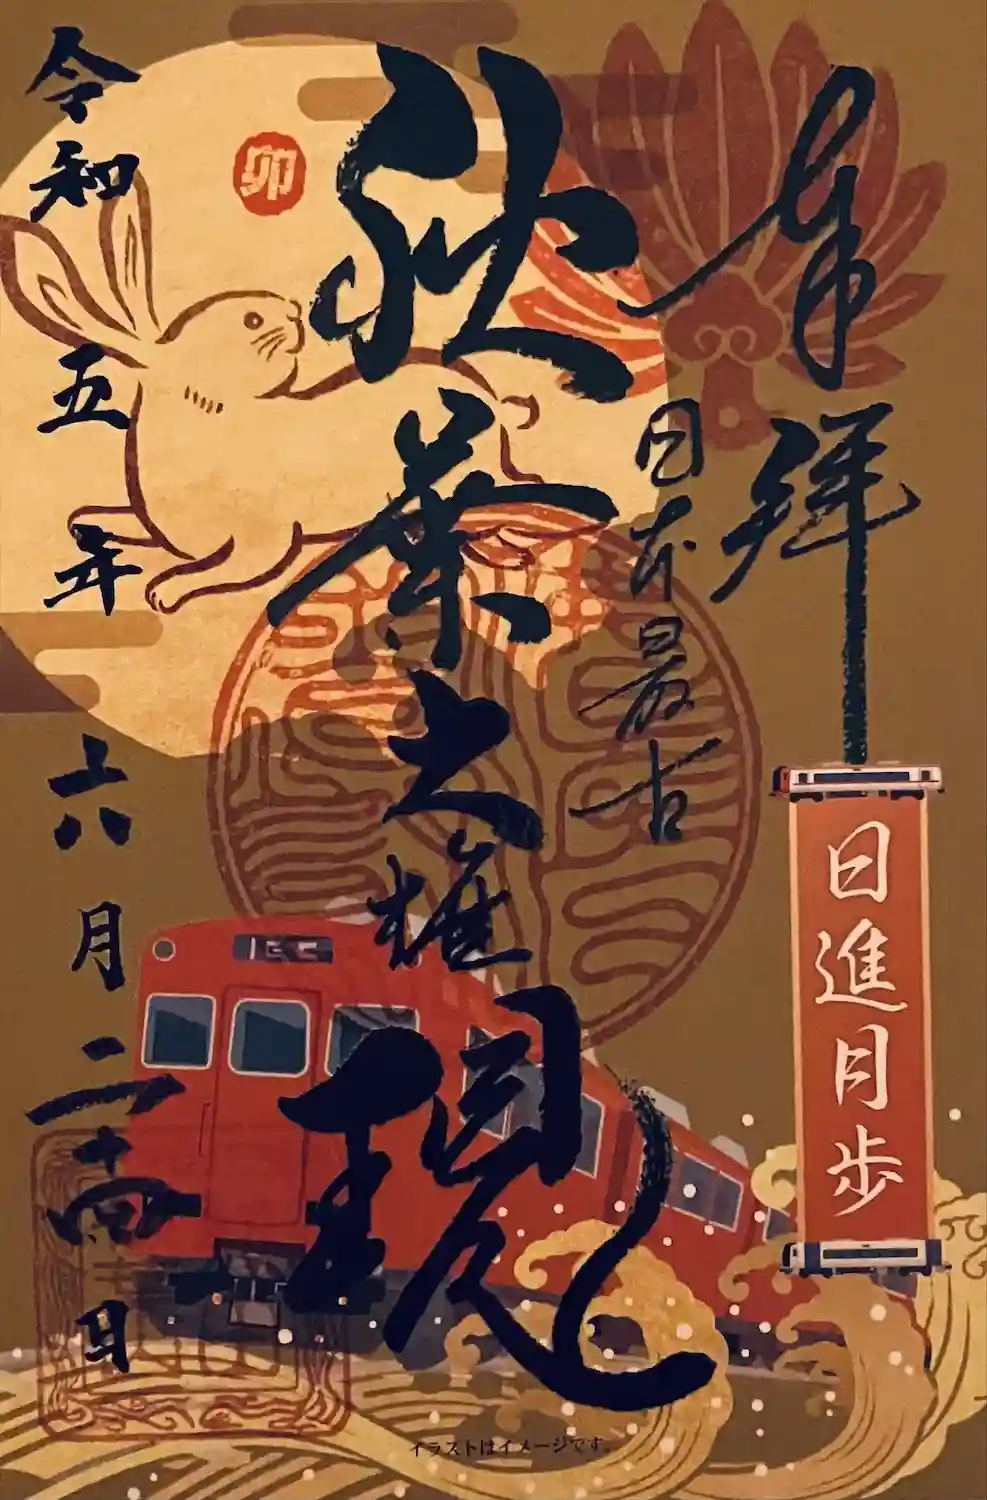 奉拝
日進月歩
日本最古
秋葉大権現
卯
令和五年六月二十四日
イラストはイメージです。